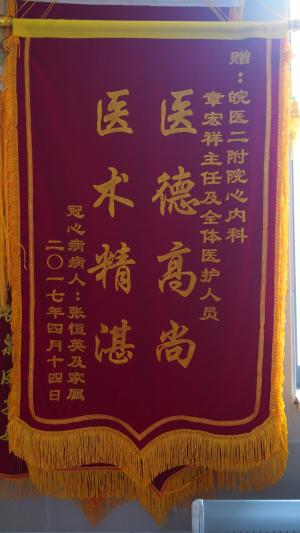 赠：皖医二附院心内科
章宏祥主任及全体医护人员
医德高尚
医术精湛
冠心病病人：张恒英及家属
二〇一七年四月十四日